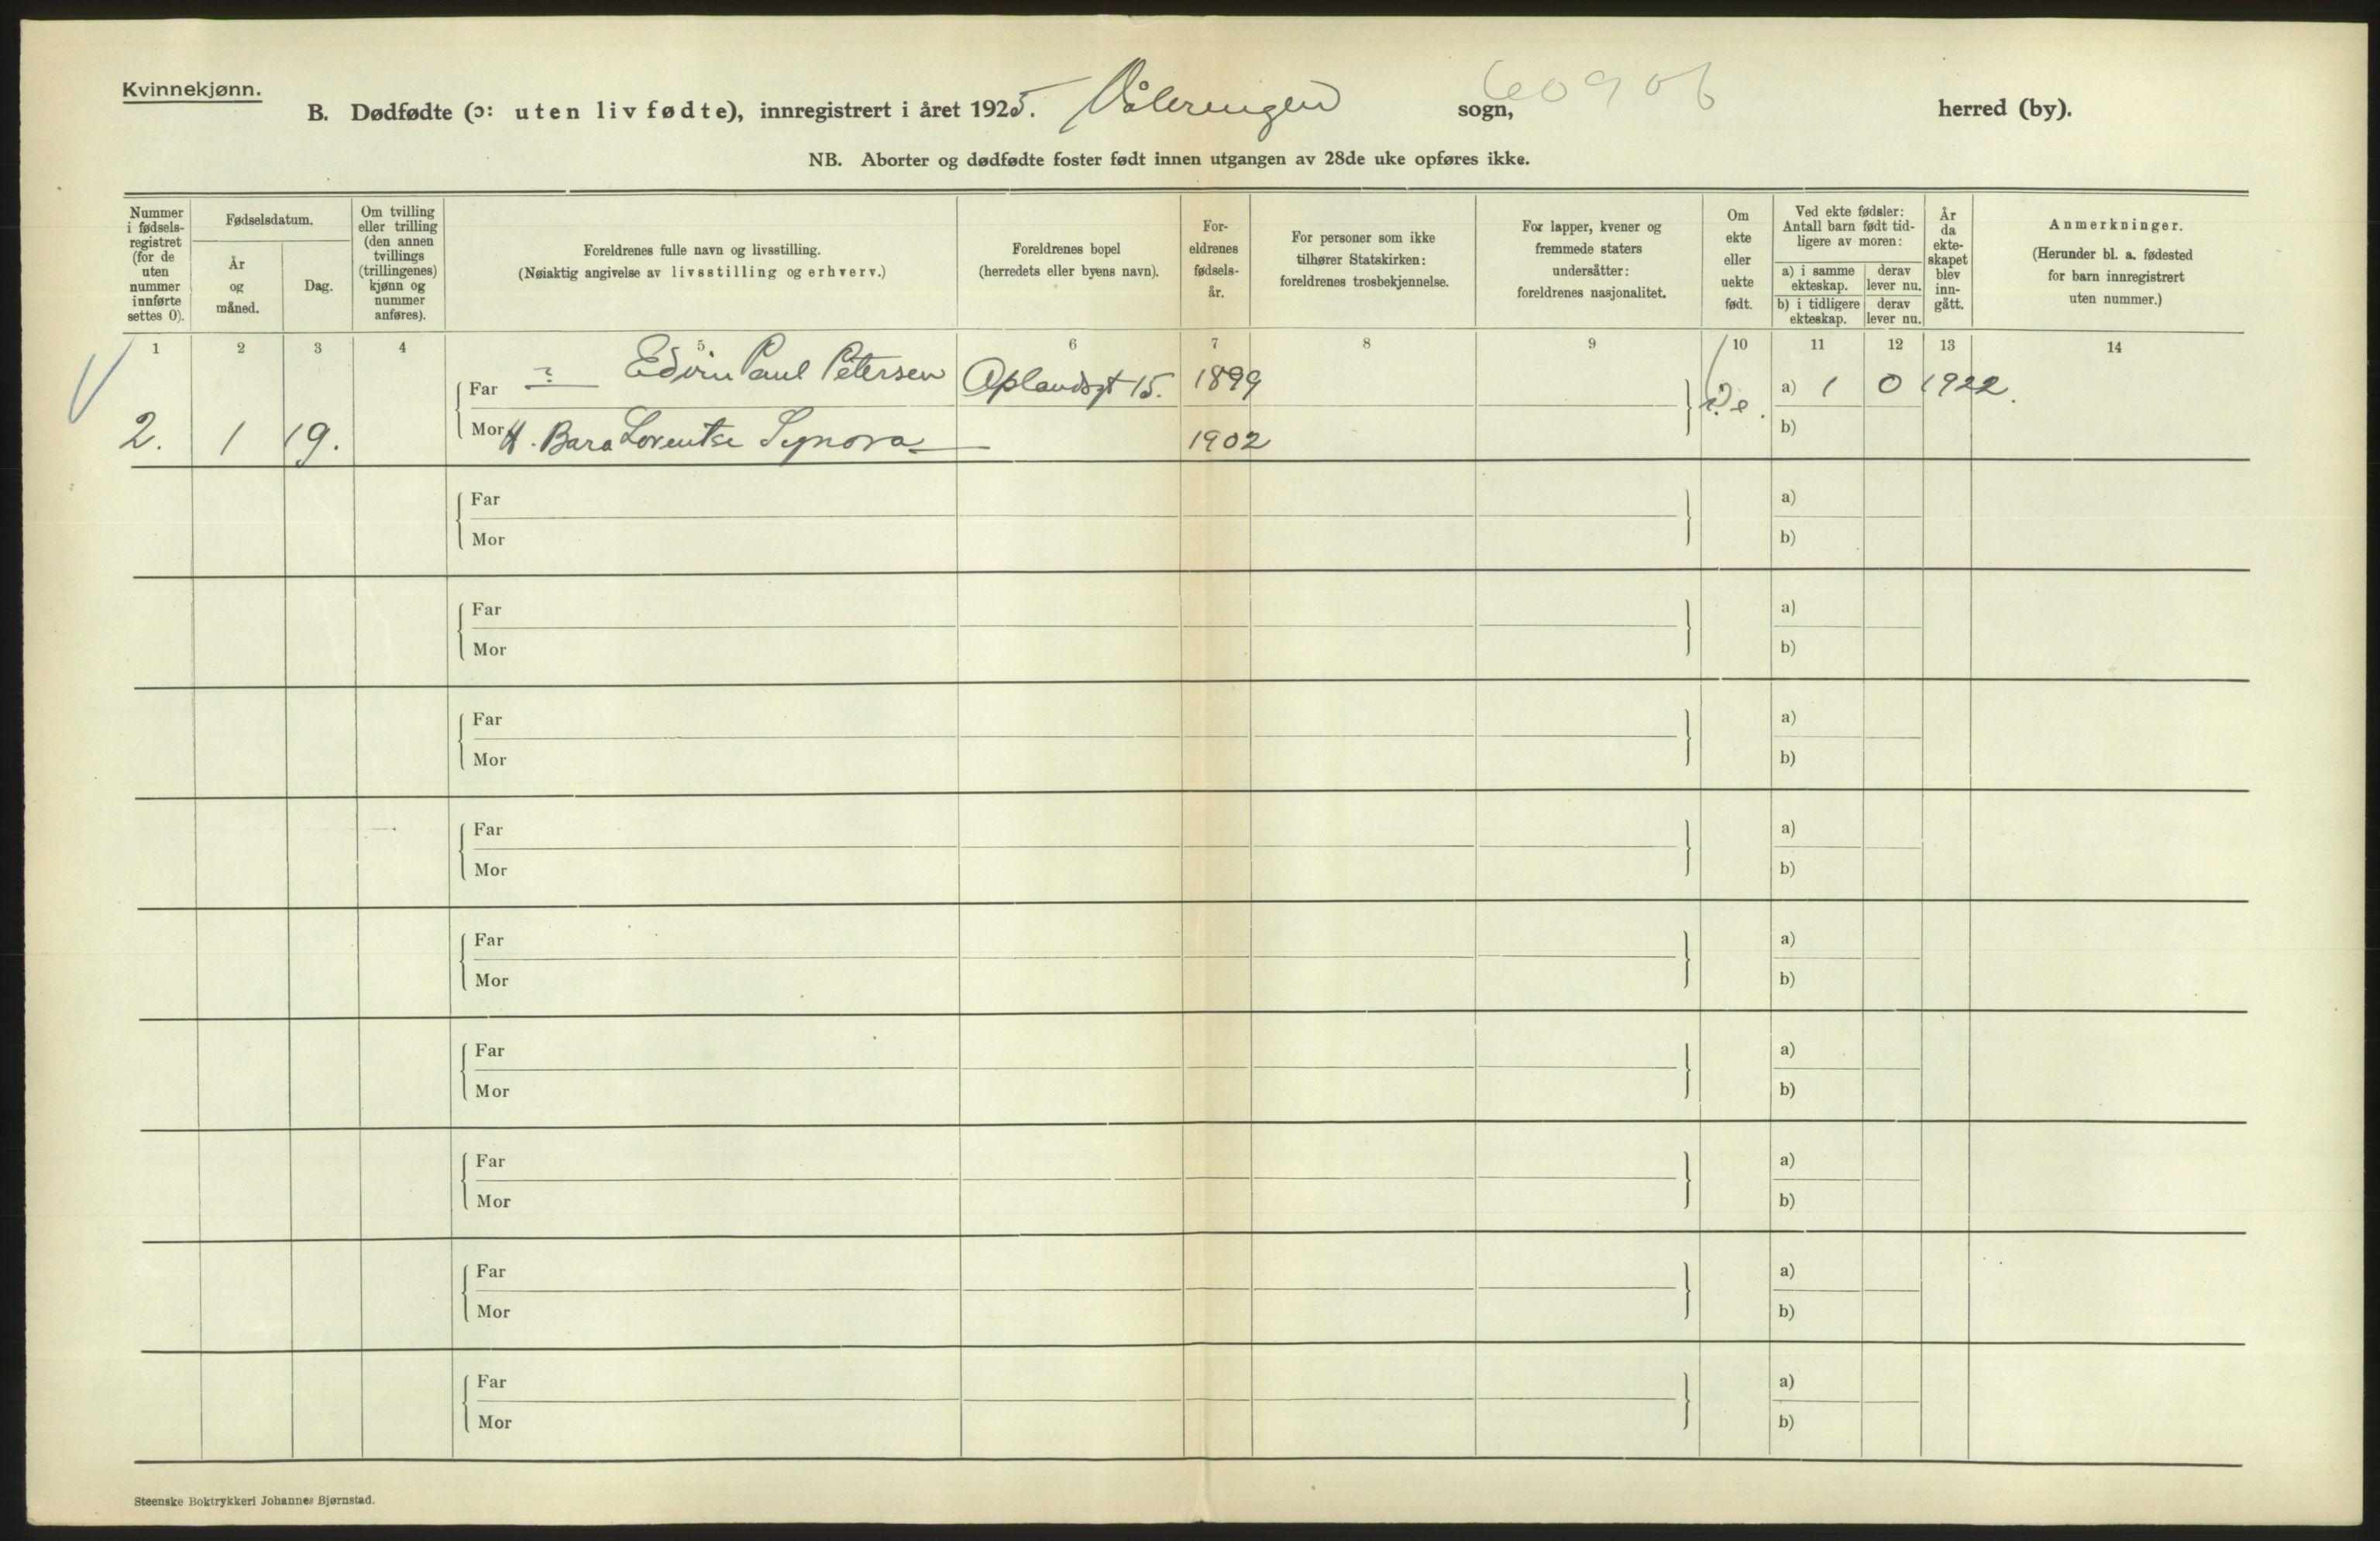 Kvinnekjønn.
B. Dødfødte (ɔ: uten liv fødte), innregistrert i året 1925. Vålerengen sogn, 60906 herred (by).
NB. Aborter og dødfødte foster født innen utgangen av 28de uke opføres ikke.
Nummer i fødsels-registret (for de uten nummer innførte settes 0).
Fødselsdatum.
År og måned.
Dag.
Om tvilling eller trilling (den annen tvillings (trillingenes) kjønn og nummer anføres).
Foreldrenes fulle navn og livsstilling.
(Nøiaktig angivelse av livsstilling og erhverv.)
Foreldrenes bopel
(herredets eller byens navn).
For-eldrenes fødsels-år.
For personer som ikke tilhører Statskirken: foreldrenes trosbekjennelse.
For lapper, kvener og fremmede staters undersåtter: foreldrenes nasjonalitet.
Om ekte eller uekte født.
Ved ekte fødsler: Antall barn født tid-ligere av moren:
a) i samme ekteskap.
derav lever nu.
b) i tidligere ekteskap.
derav lever nu.
År da ekte-skapet blev inn-gått.
Anmerkninger.
(Herunder bl. a. fødested for barn innregistrert uten nummer.)
1 2 3 4 5 6 7 8 9 10 11 12 13 14
Far Edvin Paul Petersen Oplandsgt 15. 1899 a) 1 0 1922.
2. 1 19. Mor H. Bara Lorentse Synora 1902 b)
Far a)
Mor b)
Far a)
Mor b)
Far a)
Mor b)
Far a)
Mor b)
Far a)
Mor b)
Far a)
Mor b)
Far a)
Mor b)
Far a)
Mor b)
Far a)
Mor b)
Steenske Boktrykkeri Johannes Bjørnstad.